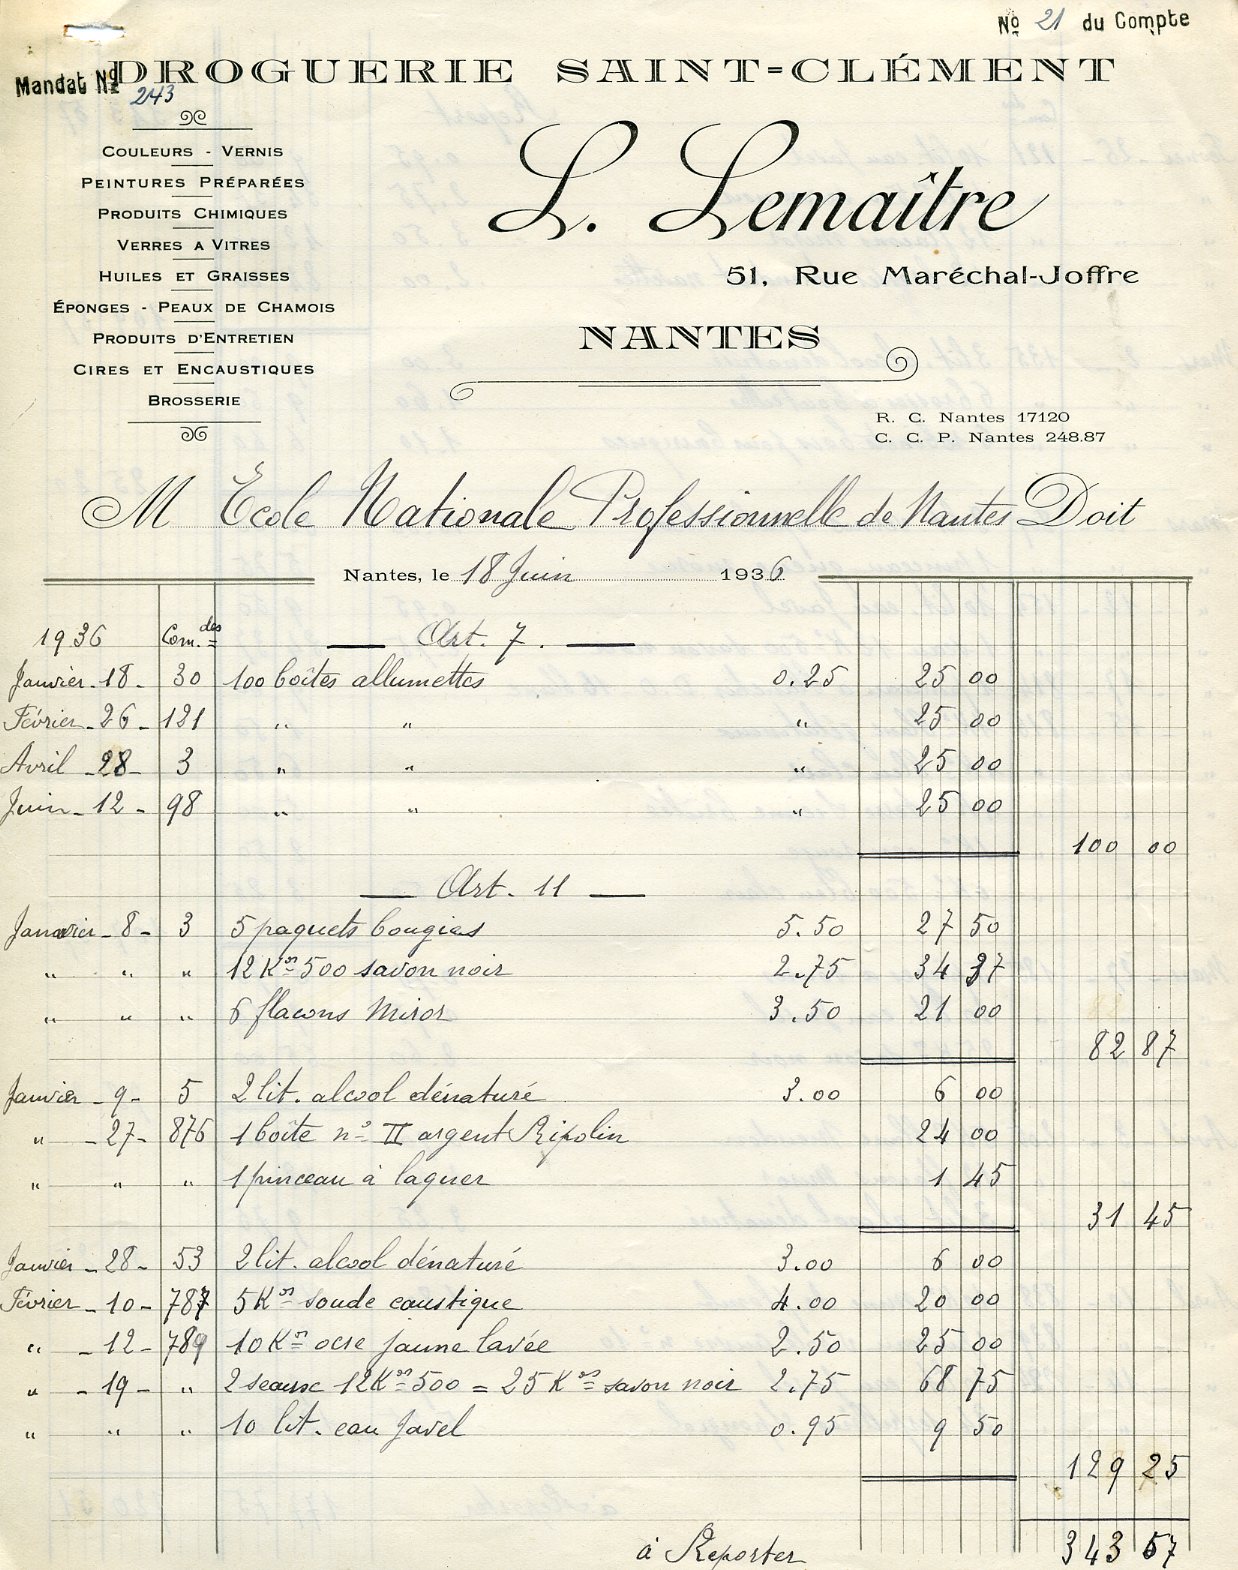 No 21 du Compte
Mandat No 243
DROGUERIE SAINT-CLÉMENT
COULEURS - VERNIS
PEINTURES PRÉPARÉES
PRODUITS CHIMIQUES
VERRES A VITRES
HUILES ET GRAISSES
ÉPONGES - PEAUX DE CHAMOIS
PRODUITS D'ENTRETIEN
CIRES ET ENCAUSTIQUES
BROSSERIE
L. Lemaître
51, Rue Maréchal-Joffre
NANTES
R. C. Nantes 17120
C. C. P. Nantes 248.87
M École Nationale Professionnelle de Nantes Doit
Nantes, le 18 Juin 1936
1936 Com.des — Art. 7. —
Janvier - 18 - 30 100 boîtes allumettes 0.25 25 00
Février - 26 - 121 " " " 25 00
Avril - 28 - 3 " " " 25 00
Juin - 12 - 98 " " " 25 00
100 00
— Art. 11 —
Janvier - 8 - 3 5 paquets bougies 5.50 27 50
" " " 12 Kos 500 savon noir 2.75 34 37
" " " 6 flacons Miror 3.50 21 00
82 87
Janvier - 9 - 5 2 lit. alcool dénaturé 3.00 6 00
" - 27 - 876 1 boîte no II argent Ripolin 24 00
" " " 1 pinceau à laquer 1 45
31 45
Janvier - 28 - 53 2 lit. alcool dénaturé 3.00 6 00
Février - 10 - 787 5 Kos soude caustique 4.00 20 00
" - 12 - 789 10 Kos ocre jaune lavée 2.50 25 00
" - 19 - " 2 seaux 12 Kos 500 = 25 Kos savon noir 2.75 68 75
" " " 10 lit. eau Javel 0.95 9 50
129 25
à Reporter 343 57